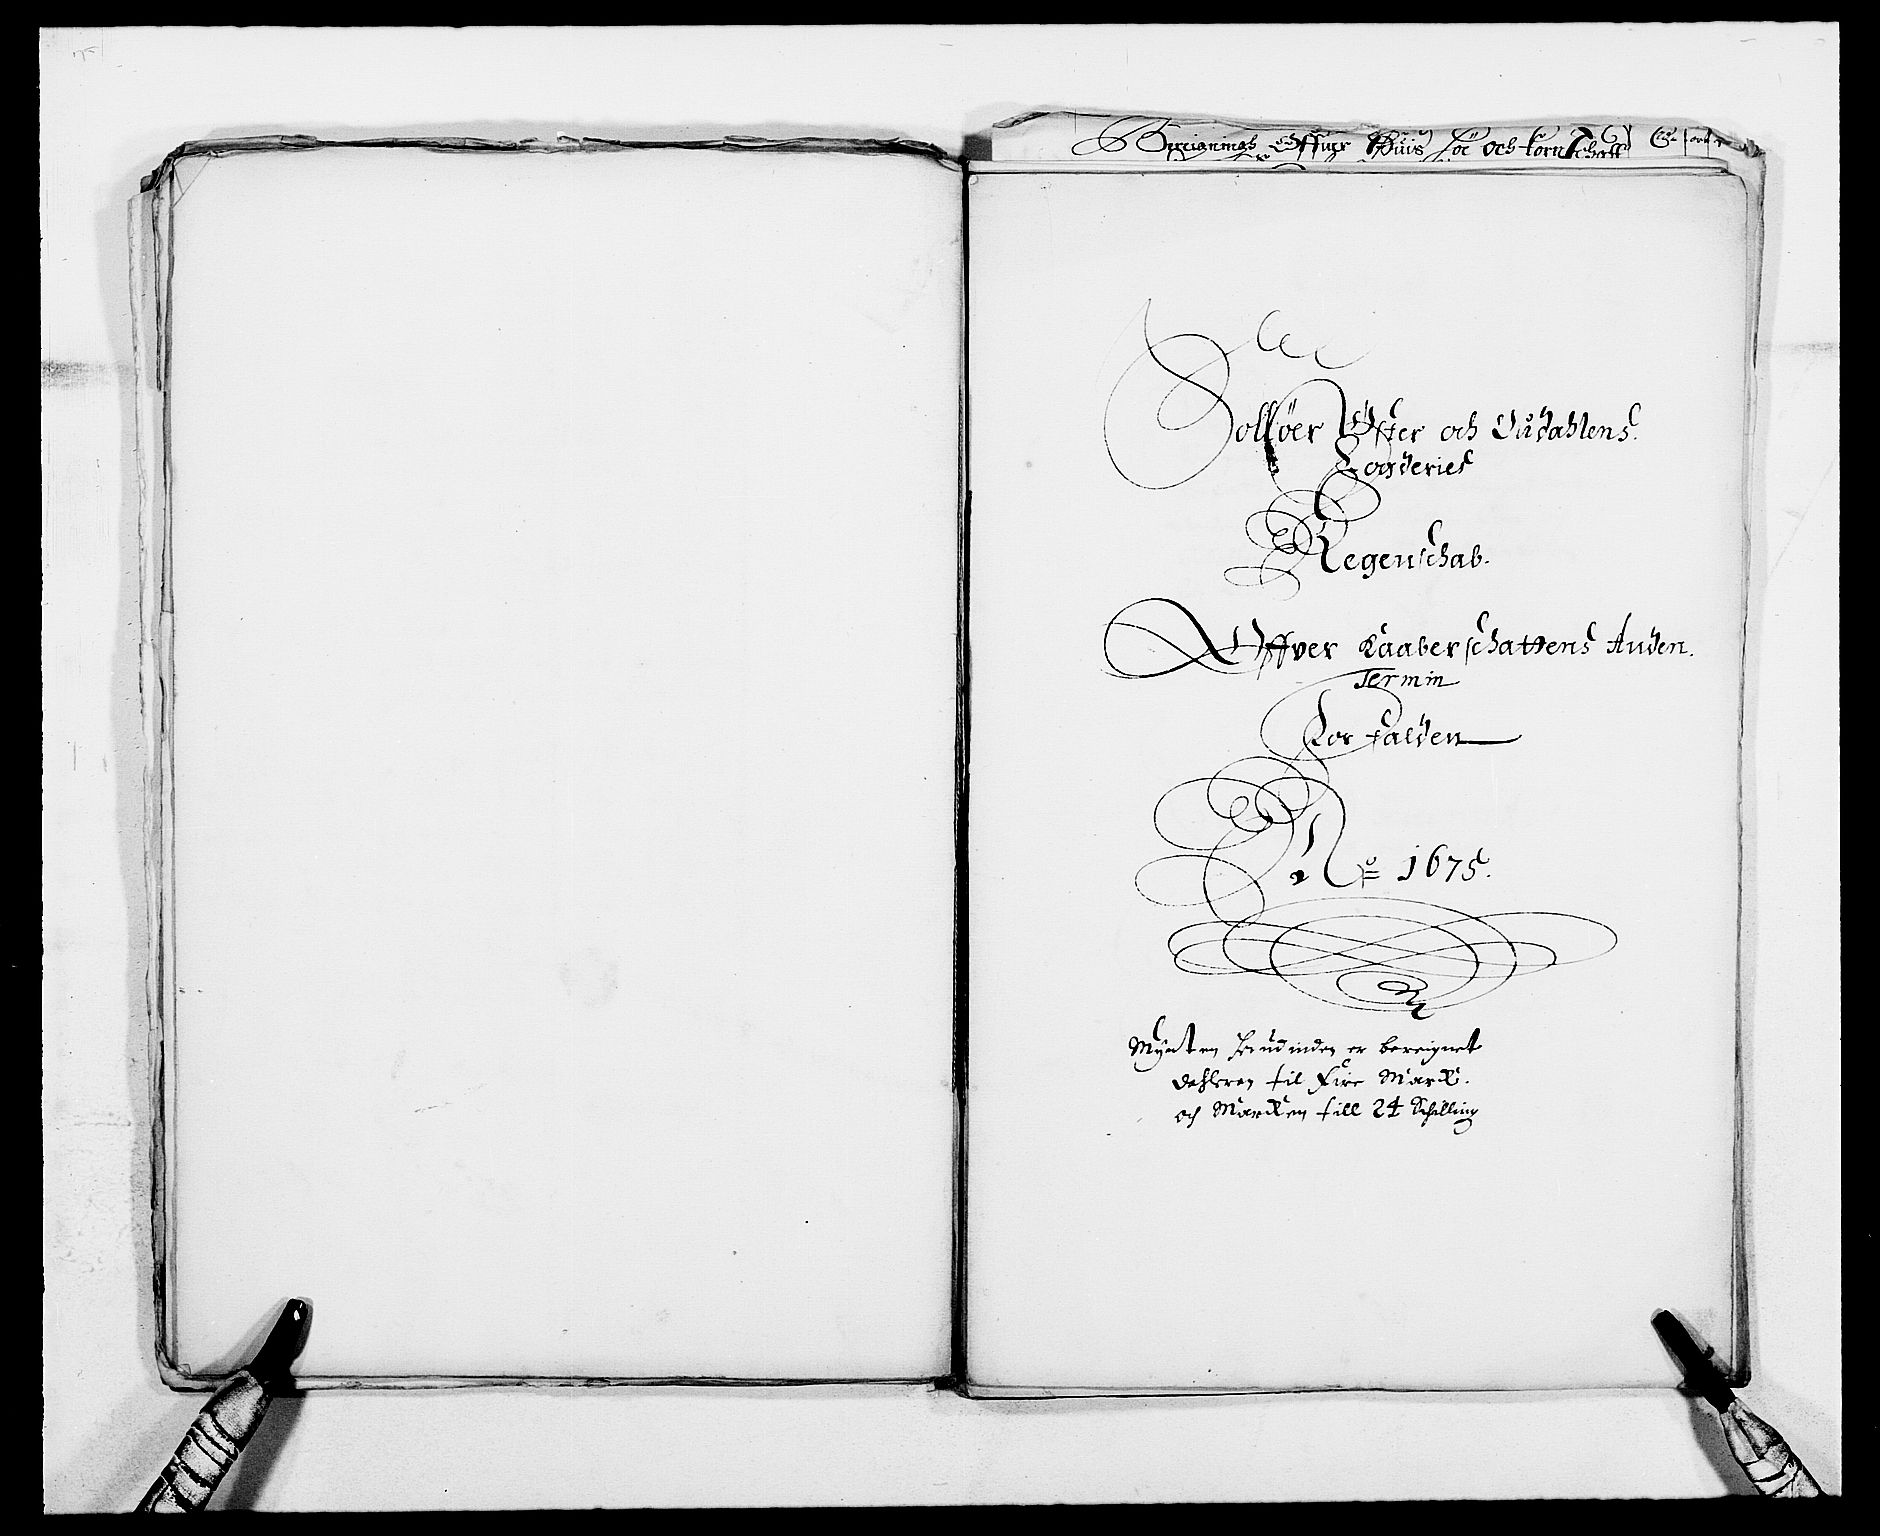 Bereignings Offuer Huus Høe och Korn Schatt
Solløer Øster och Oudahlens
Fogderies
Regenschab.
Offver Kaaberschattens Anden
Termin
For falden
Ao 1675.
Mynten herudinden er bereignet
dahleren til fire Marck.
och Marcken till 24 Schilling